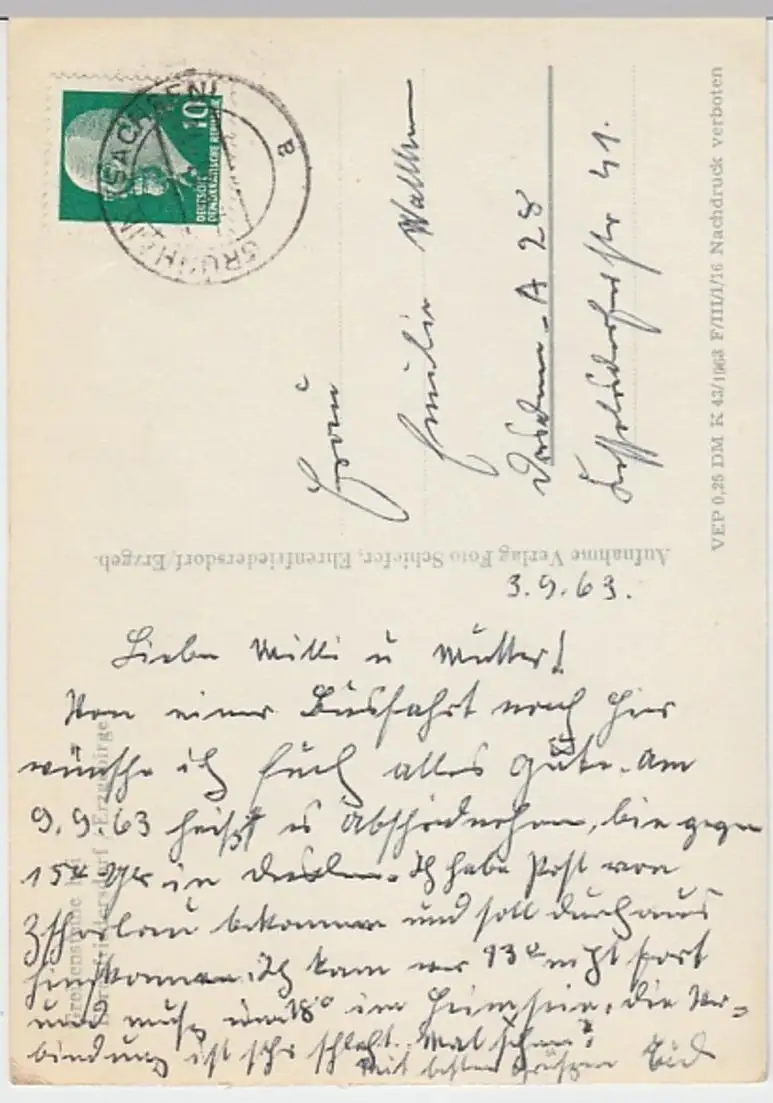 GRÜNHAIN (SACHSEN)
a
10
DEUTSCHE
DEMOKRATISCHE REPUBLIK
Frau
Emilie
Dresden-A 28
Kesselsdorferstr 41.
VEP 0,25 DM K 43/1963 F/III/1/16 Nachdruck verboten
Aufnahme Verlag Foto Schiefer, Ehrenfriedersdorf/Erzgeb.
Greifensteine bei
Ehrenfriedersdorf Erzgebirge
3.9.63.
Liebe Milli u Mutter!
Von einer Busfahrt nach hier
wünsche ich Euch alles Gute. Am
9.9.63 heißt es Abschiednehmen, bin gegen
15 Uhr in Dresden. Ich habe Post von
Zschorlau bekommen und soll durchaus
hinkommen. Ich kann vor 13 nicht fort
und muß um 18° im Heim sein, die Ver=
bindung ist sehr schlecht. Mal sehen?
Mit besten Grüßen